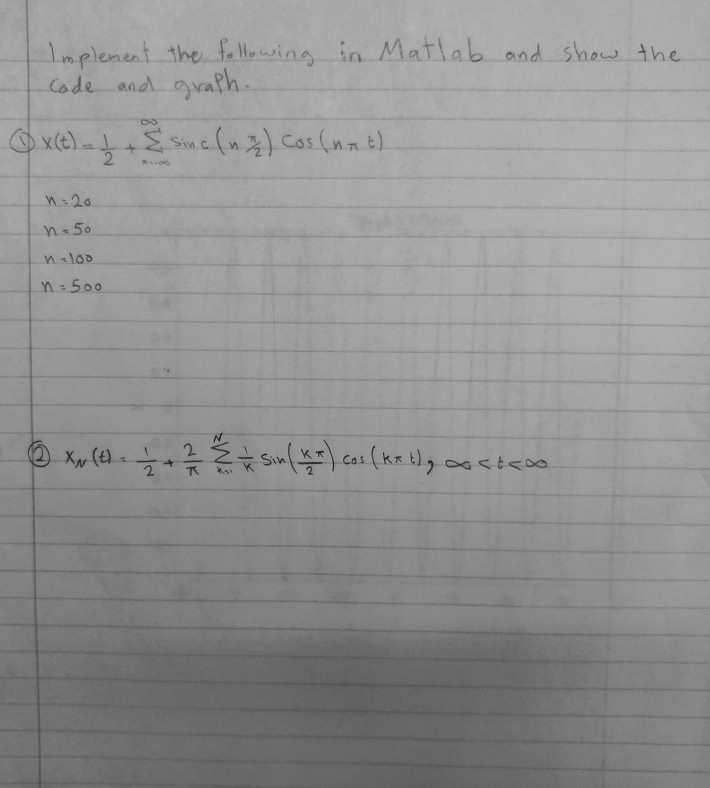 Implement the following in Matlab and show the
code and graph.
① x(t) = 1/2 + ∞ Σ n=-∞ sinc(n π/2) cos(nπt)
n=20
n=50
n=100
n=500
② x_N(t) = 1/2 + 2/π N Σ k=1 1/k sin(kπ/2) cos(kπt), ∞<t<∞